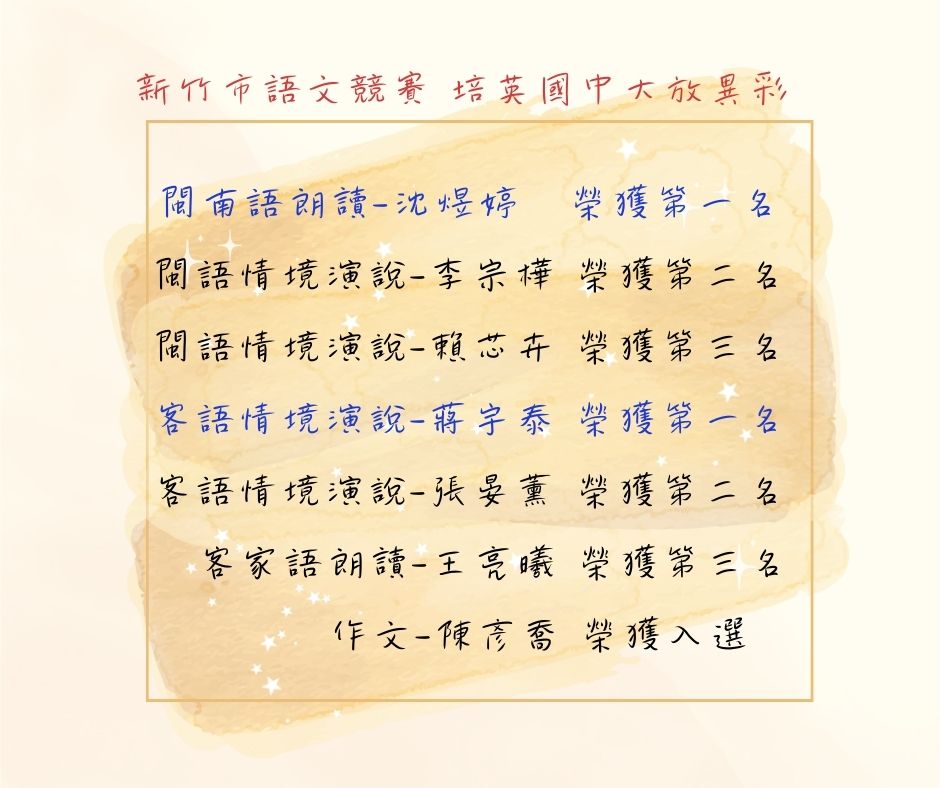 新竹市語文競賽 培英國中大放異彩
閩南語朗讀-沈煜婷 榮獲第一名
閩語情境演說-李宗樺 榮獲第二名
閩語情境演說-賴芯卉 榮獲第三名
客語情境演說-蔣宇泰 榮獲第一名
客語情境演說-張晏薰 榮獲第二名
客家語朗讀-王亮曦 榮獲第三名
作文-陳彥喬 榮獲入選